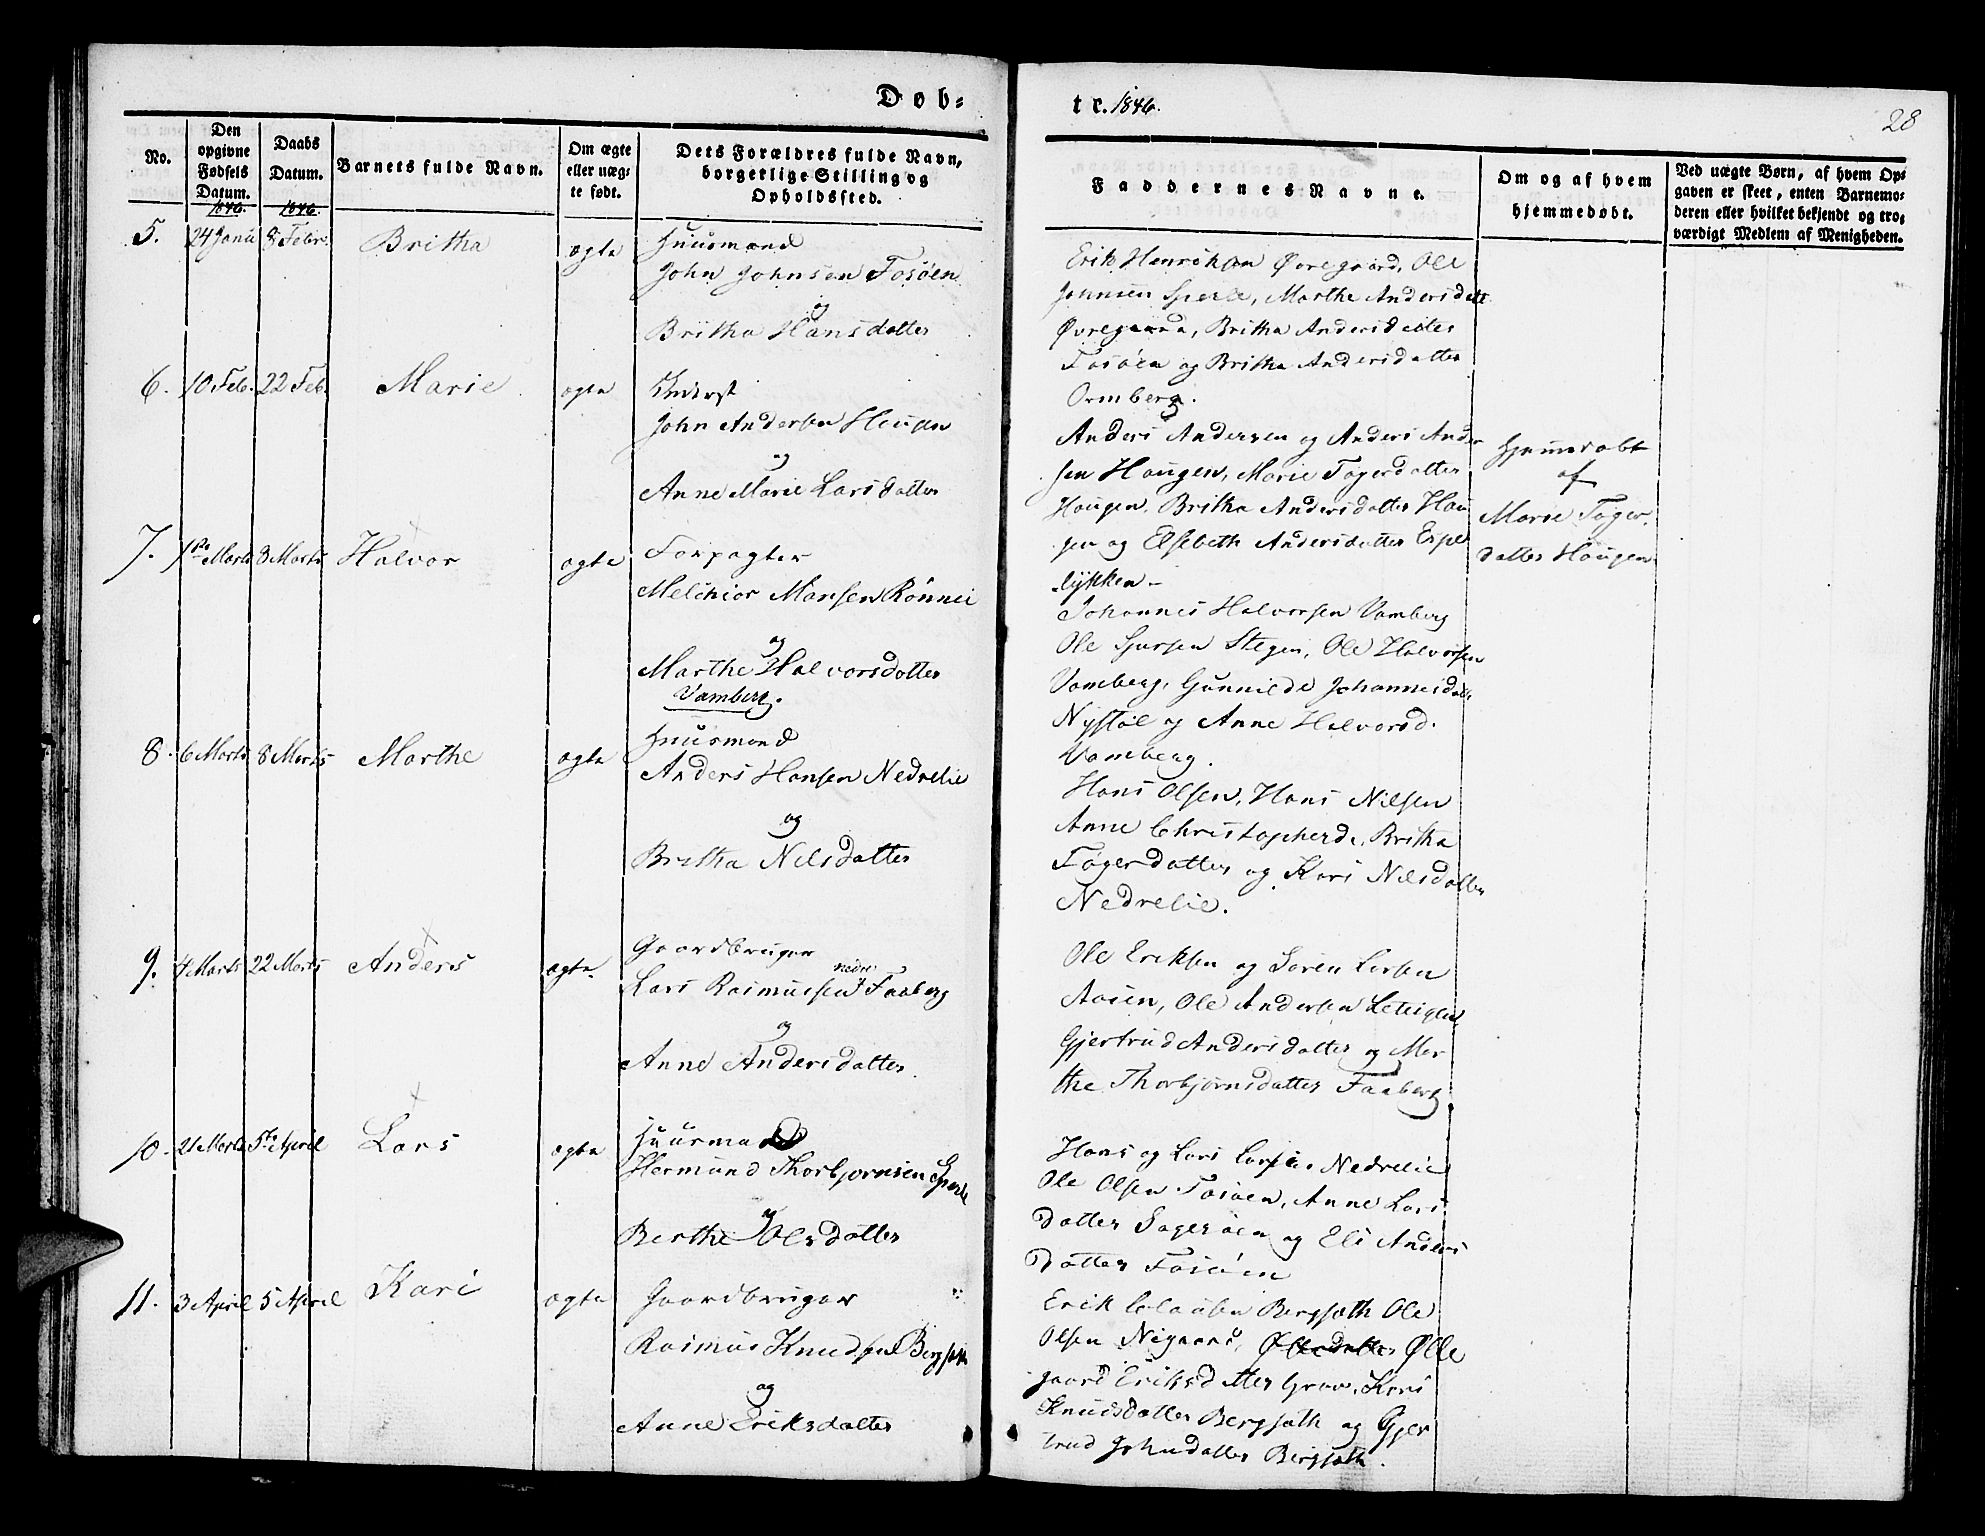 Døb=
te. 1846.
28
No.
Den opgivne Fødsels Datum. 1846.
Daabs Datum. 1846.
Barnets fulde Navn.
Om ægte eller uægte født.
Dets Forældres fulde Navn, borgerlige Stilling og Opholdssted.
Faddernes Navne.
Om og af hvem hjemmedøbt.
Ved uægte Børn, af hvem Op=
gaven er skeet, enten Barnemo=
deren eller hvilket bekjendt og tro=
værdigt Medlem af Menigheden.
5. 24 Janu 8 Febr. Britha ægte
Huusmand
John Johnsen Fosøen
og
Britha Hansdatter
Erik Henriksen Øvregaard, Ole
Johnsen Sperle, Marthe Andersdatt
Øvregaard, Britha Andersdatter
Fosøen og Britha Andersdatter
Ormberg.
6. 10 Feb. 22 Feb. Marie ægte
Inderst
John Andersen Haugen
og
Anne Marie Larsdatter
Anders Andersen og Anders Ander
sen Haugen, Marie Tøgersdatter
Haugen, Britha Andersdatter Hau
gen og Elsebeth Andersdatter Espe
lykken -
Hjemmedøbt
af
Marie Tøger
datter Haugen
7. 1ste Marts 8 Marts Halvor ægte
Forpagter
Melchior Monsen Rønnei
og
Marthe Halvorsdatter
Vamberg.
Johannes Halvorsen Vamberg
Ole Sjursen Stegen, Ole Halvorsen
Vamberg, Gunnilde Johannesdatt.
Nystøl og Anne Halvorsd.
Vamberg.
8. 6 Marts 8 Marts Marthe ægte
Huusmand
Anders Hansen Nedrelie
og
Britha Nilsdatter
Hans Olsen, Hans Nilsen
Anne Christopherd, Britha
Tøgersdatter og Kari Nilsdatter
Nedrelie.
9. 4 Marts 22 Marts Anders ægte
Gaardbruger
Lars Rasmussen nedre Faaberg
og
Anne Andersdatter
Ole Eriksen og Søren Larsen
Aasen, Ole Andersen
Gjertrud Andersdatter og Mar
the Thorbjørnsdatter Faaberg
10. 21 Marts 5te April Lars ægte
Huusmand
Hermund Thorbjørnsen Sperle
og
Berthe Olsdatter
Hans og Lars Larsen Nedrelie
Ole Olsen Fosøen, Anne Lars
datter Sagerøen og Eli Anders
datter Fosøen
11. 3 April 5 April Kari ægte
Gaardbruger
Rasmus Knudsen Bergseth
og
Anne Eriksdatter
Erik Clausen Bergsæth Ole
Olsen Nigaard, Ølle
gaard Eriksdatter Grov, Kari
Knudsdatter Bergsæth og Gjer
trud Johndatter Bergsæth.